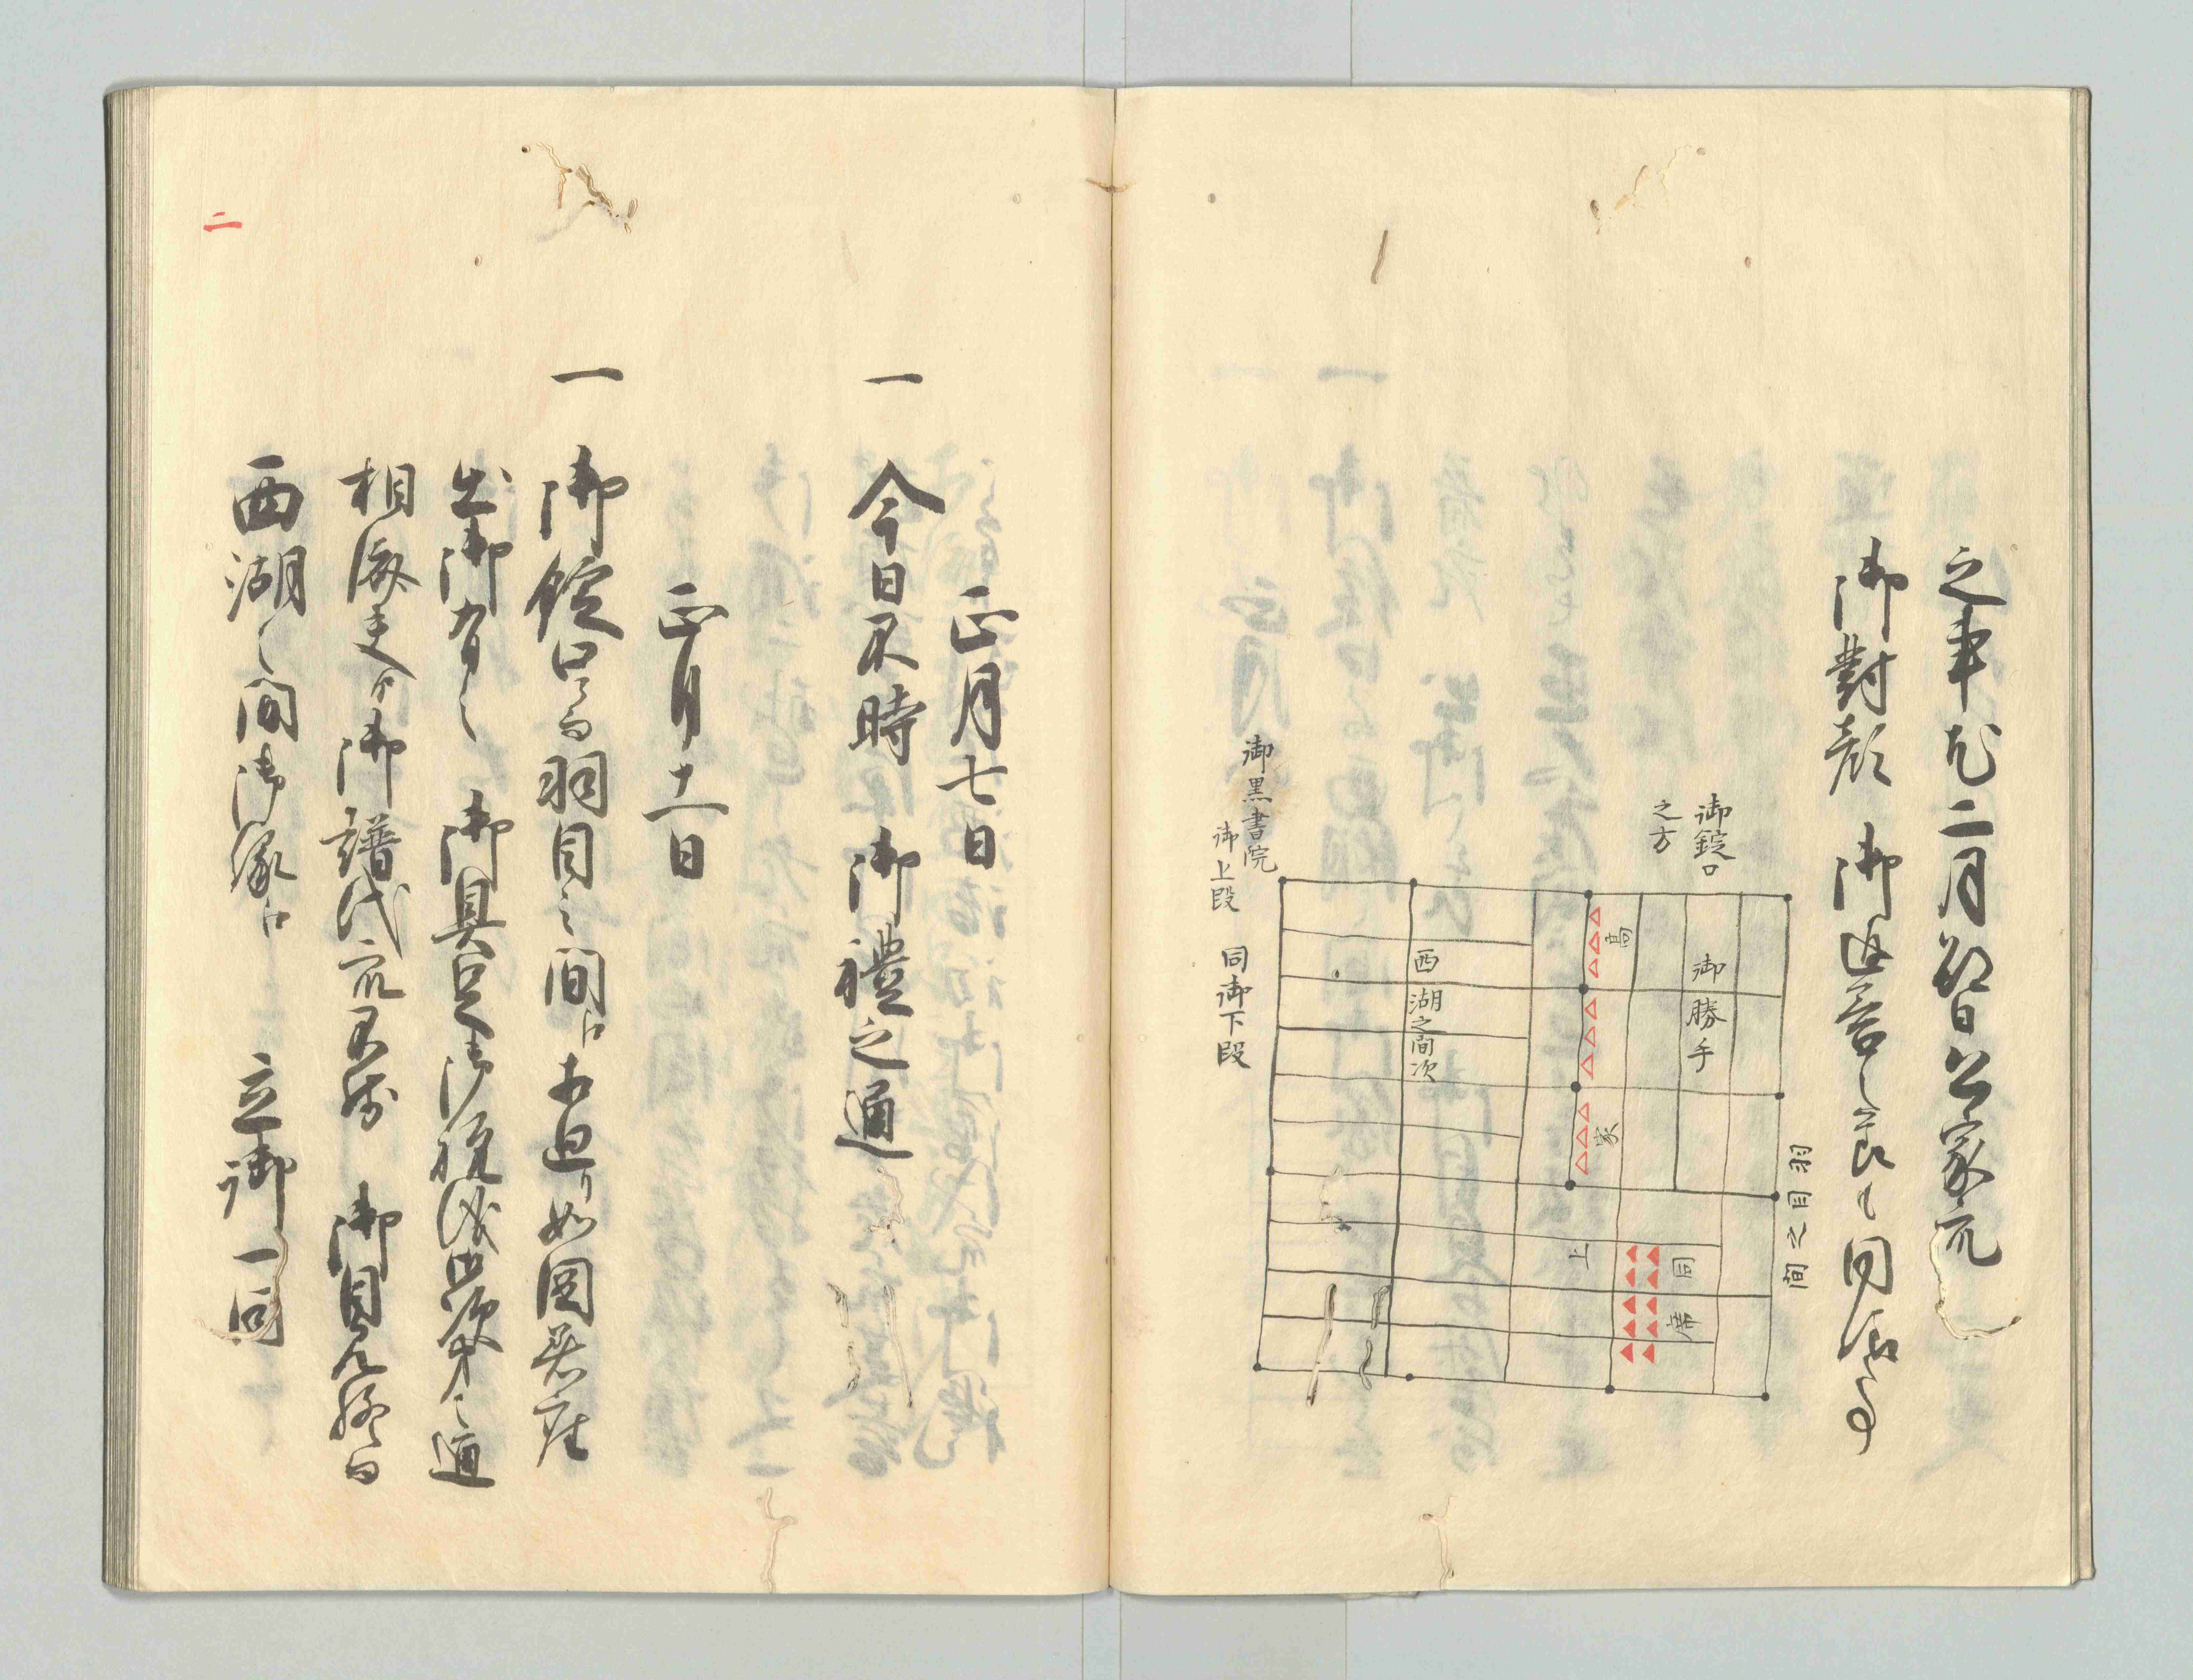 之事尤二月朔日公家衆
御對顔 御返答之節も同断之事
御錠口
之方
御勝手
羽目之間
高
家
同
席
上
西湖之間次
御黒書院
御上段
同御下段
正月七日
一 今日不時 御禮之通
正月十一日
一 御錠口ゟ羽目之間江相廻り如図着座
出御有之 御具足御祝儀御次第之通
相済夫ゟ御譜代衆不残 御目見、畢而
西湖之間御縁江 立御一同
二